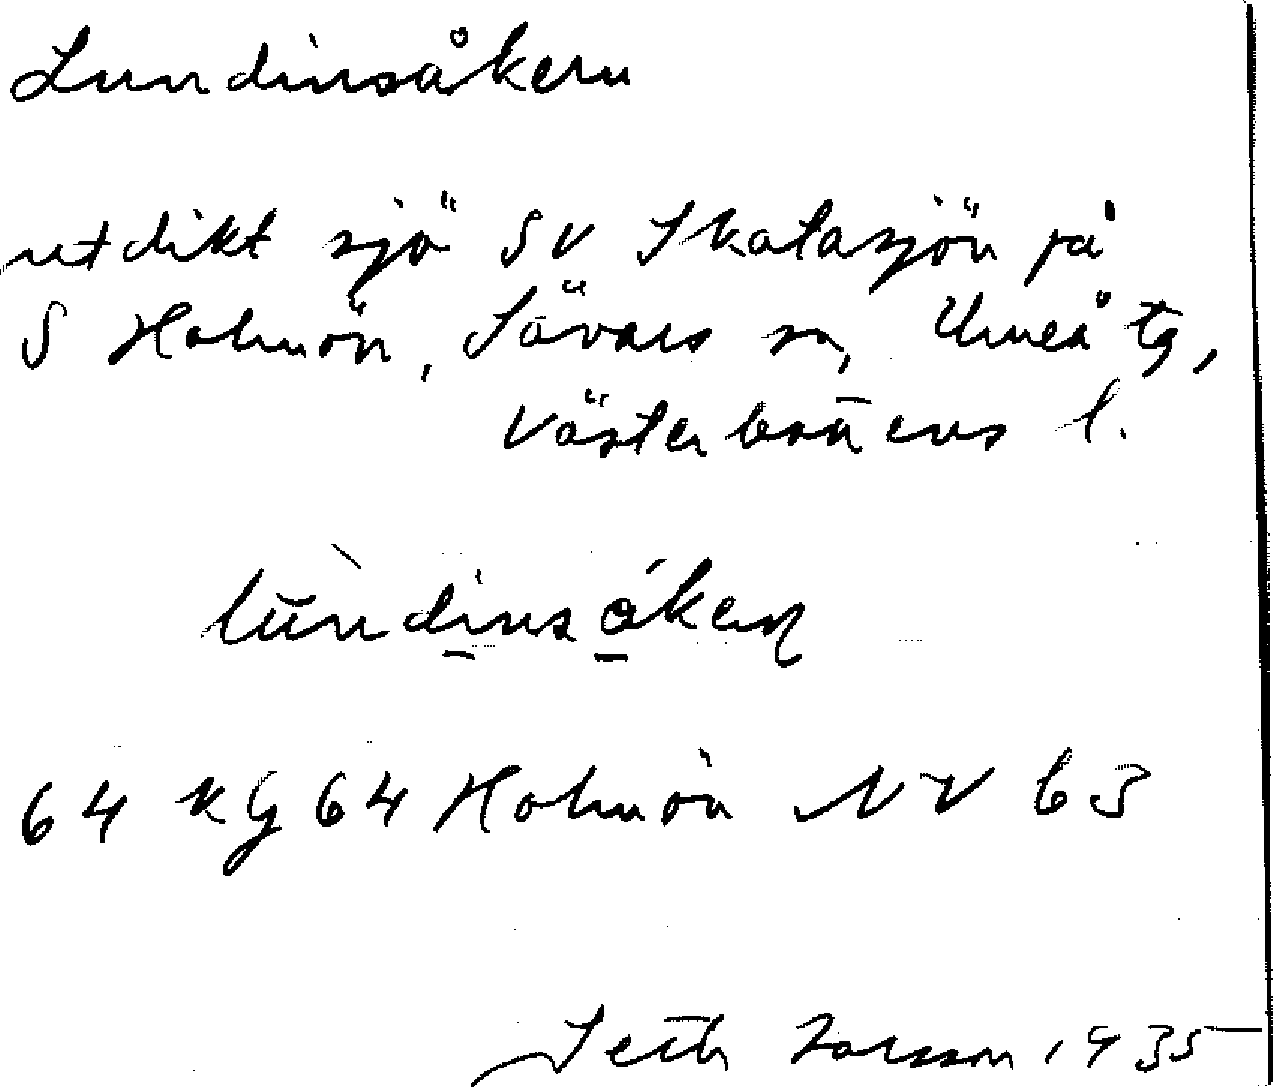 Lundinsåkern
utdikt sjö SV Skatasjön på
S Holmön, Sävars sn, Umeå tg,
Västerbottens l.
64 KG 64 Holmön NV 63
Seth Larsson 1935